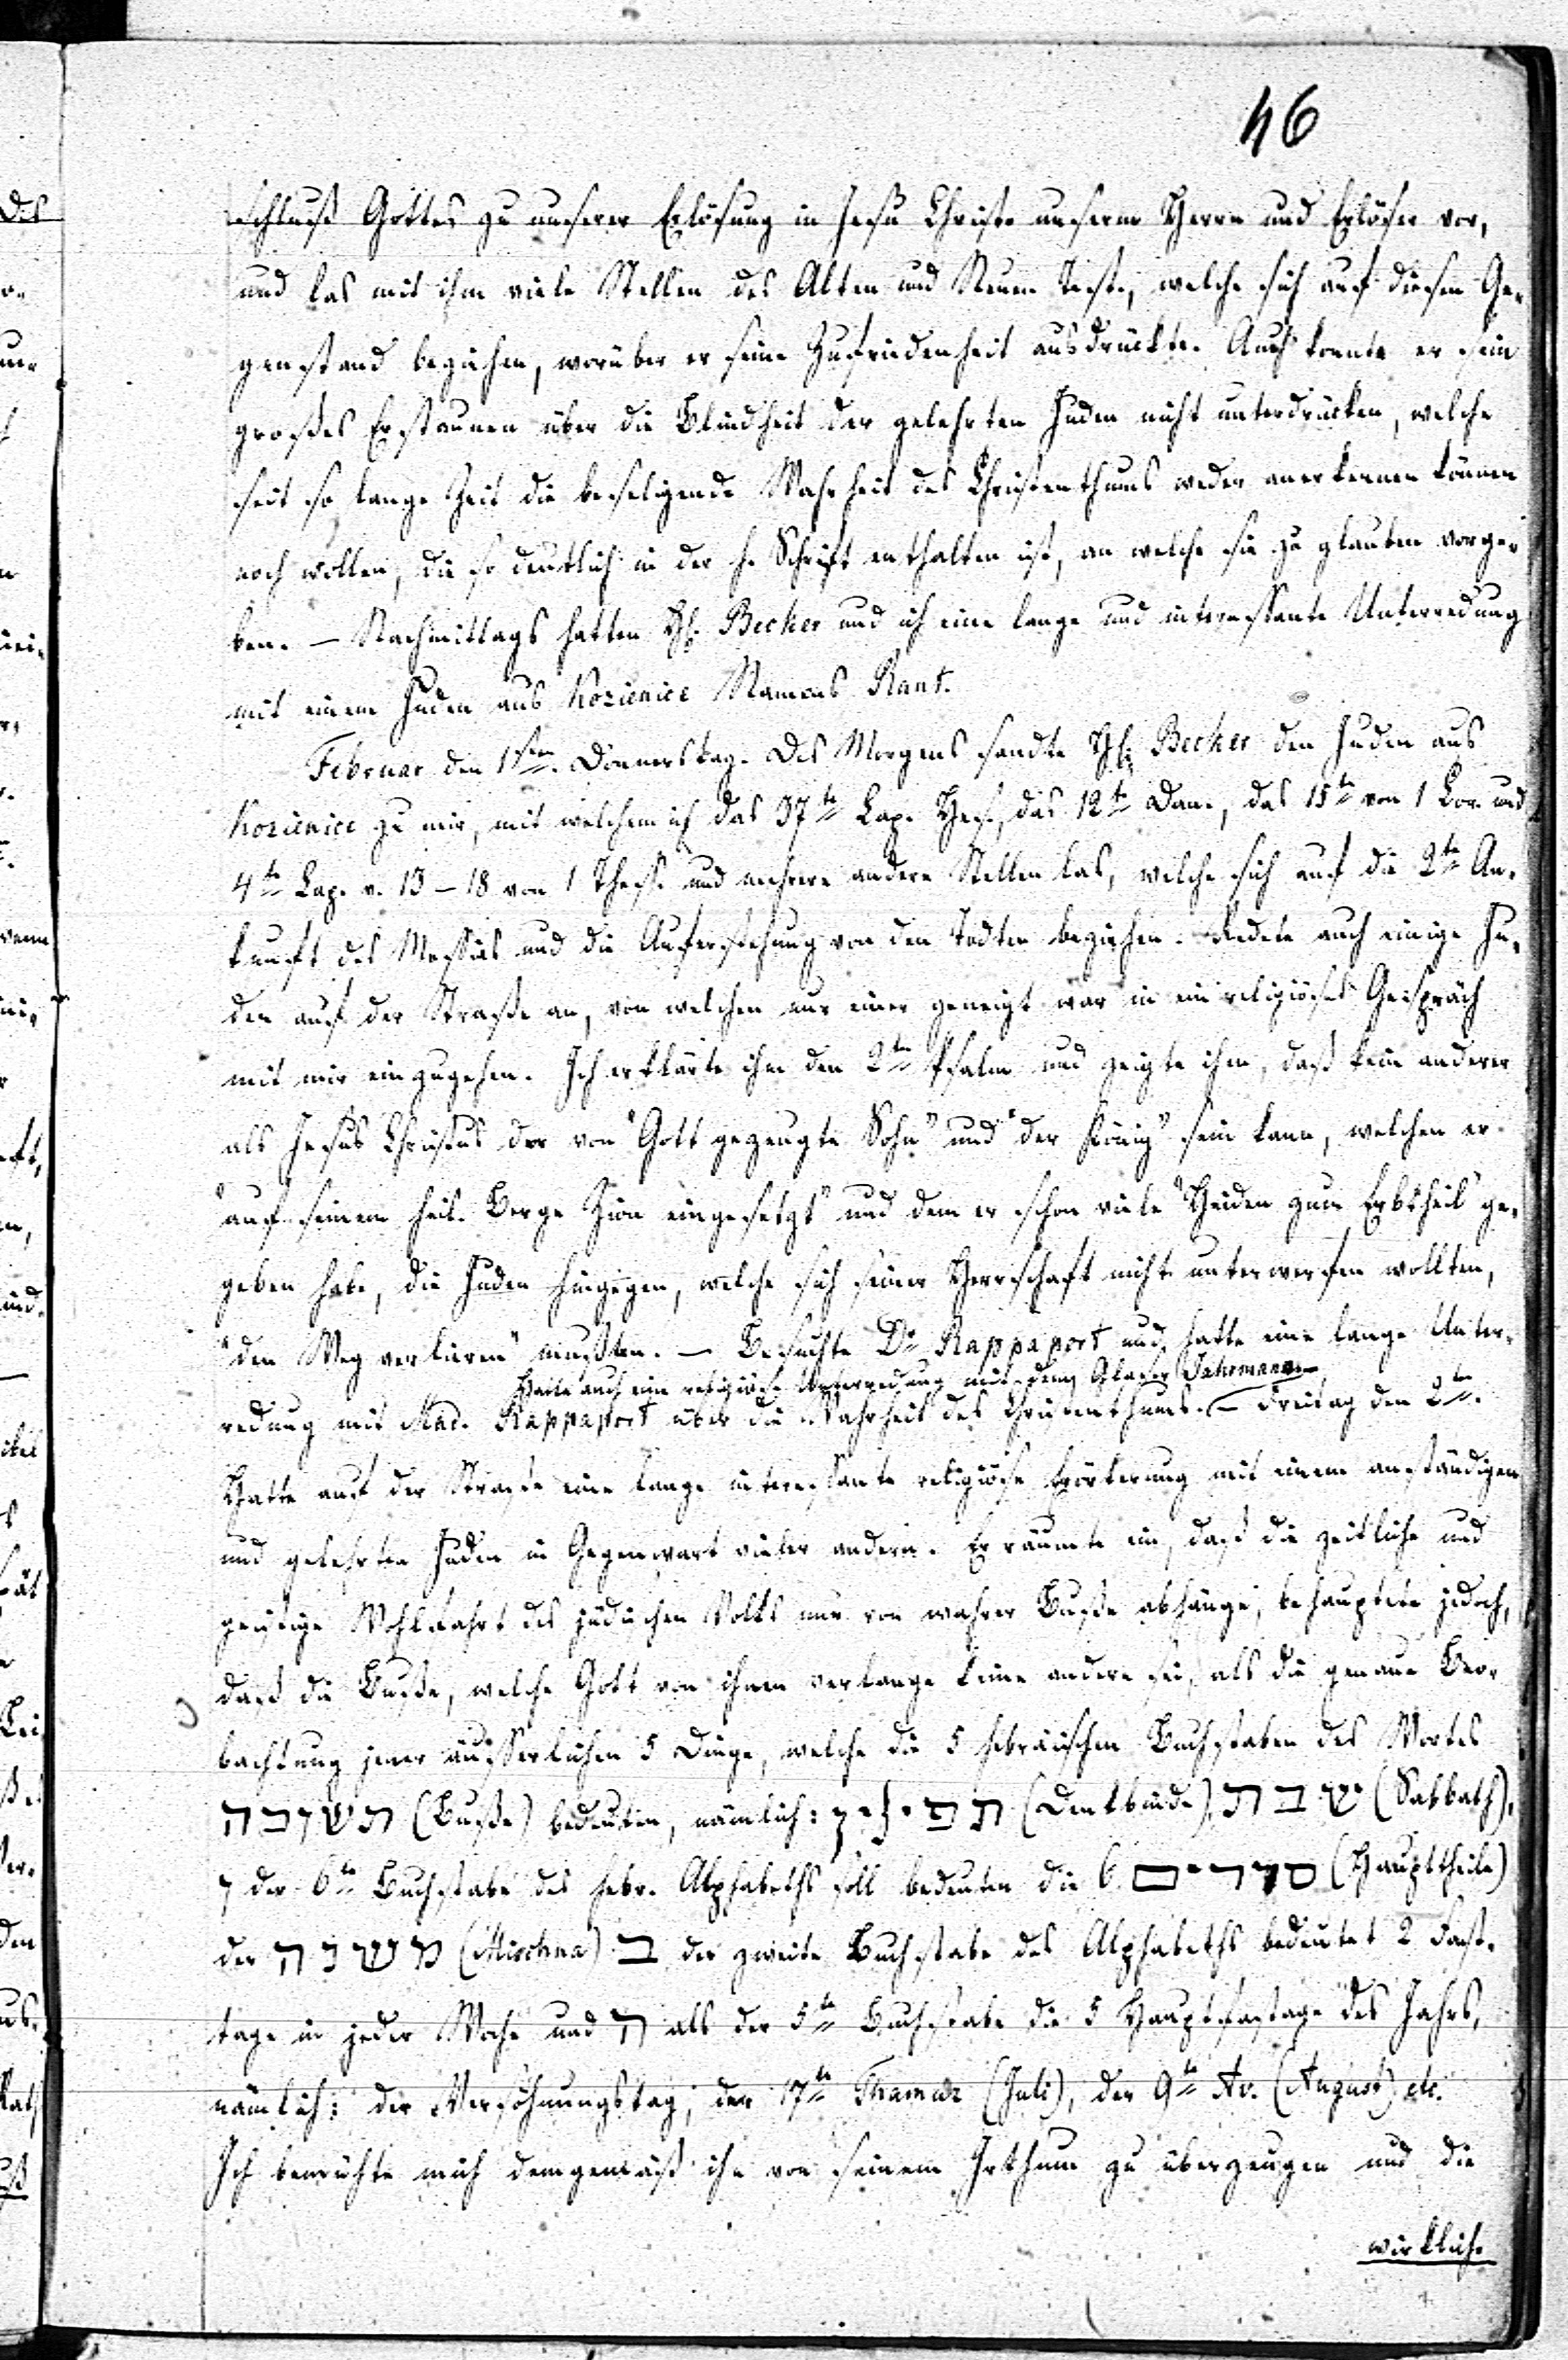 46
schluß Gottes zu unserer Erlösung in Jesu Christo unserm Herrn und Erlöser vor,
und las mit ihm viele Stellen des Alten und Neuen Test., welche sich auf diesen Ge-
genstand beziehen, worüber er seine Zufriedenheit ausdrückte. Auch konnte er sein
großes Erstaunen über die Blindheit der gelehrten Juden nicht unterdrücken, welche
seit so lange Zeit die beseligende Wahrheit des Christenthums weder anerkennen können
noch wollen, die so deutlich in der h. Schrift enthalten ist, an welche sie zu glauben vorge-
ben. — Nachmittags hatten H. Becker und ich eine lange und interessante Unterredung
mit einem Juden aus Kozienice Namens Rant.
Februar den 1sten. Donnerstag. Des Morgens sandte H. Becker den Juden aus
Kozienice zu mir, mit welchem ich das 37te Cap. Hes., das 12te Dan., das 15te von 1 Cor. und
4te Cap. v. 13–18 von 1 Thess. und mehrere andere Stellen las, welche sich auf die 2te An-
kunft des Messias und die Auferstehung von den Todten beziehen. Redete auch einige Ju-
den auf der Straße an, von welchen nur einer geneigt war in ein religiöses Gespräch
mit mir einzugehen. Ich erklärte ihm den 2ten Psalm und zeigte ihm, daß kein anderer
als Jesus Christus der von "Gott gezeugte Sohn" und "der König" sein kann, welchen er
"auf seinem heil. Berge Zion eingesetzt" und dem er schon viele "Heiden zum Erbtheil" ge-
geben habe, die Juden hingegen, welche sich seiner Herrschaft nicht unterwerfen wollten,
"den Weg verlieren" mußten. — Besuchte Dr Rappaport und hatte eine lange Unter-
Hatte auch eine religiöse Unterredung mit dem Glaser Jahrmann —
redung mit Mad. Rappaport über die Wahrheit des Christenthums. — Freitag den 2te.
Hatte auf der Straße eine lange interessante religiöse Erörterung mit einem anständigen
und gelehrten Juden in Gegenwart vieler andern. Er räumte ein, daß die zeitliche und
geistige Wohlfahrt des jüdischen Volks nur von wahrer Buße abhänge, behauptete jedoch,
daß die Buße, welche Gott von ihnen verlange keine andere sei, als die genaue Beo-
bachtung jener äusserlichen 5 Dinge, welche die 5 hebräischen Buchstaben des Wortes
תשובה (Buße) bedeuten, nämlich: תפילין (Denkbinde), שבת (Sabbath),
ו der 6te Buchstabe des hebr. Alphabeths soll bedeuten die 6 סדרים (Haupttheile)
der משנה (Mischna) ב der zweite Buchstabe des Alphabeths bedeutet 2 Fast-
tage in jeder Woche und ה als der 5te Buchstabe die 5 Hauptfastage des Jahrs,
nämlich: der Versöhnungstag, der 17te Thamuz (Juli), der 9te Av. (August) etc.
Ich bemühte mich demgemäß ihn von seinem Irthum zu überzeugen und die
wirklich.